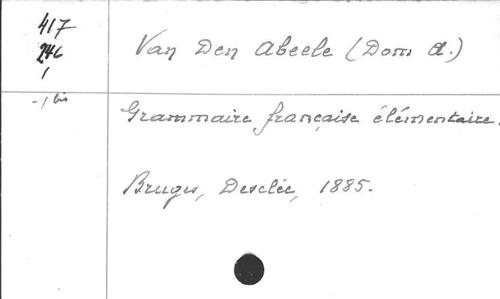 417
246
1
Van Den Abeele (Dom A.)
- 1 bis
Grammaire française élémentaire.
Bruges, Desclée, 1885.